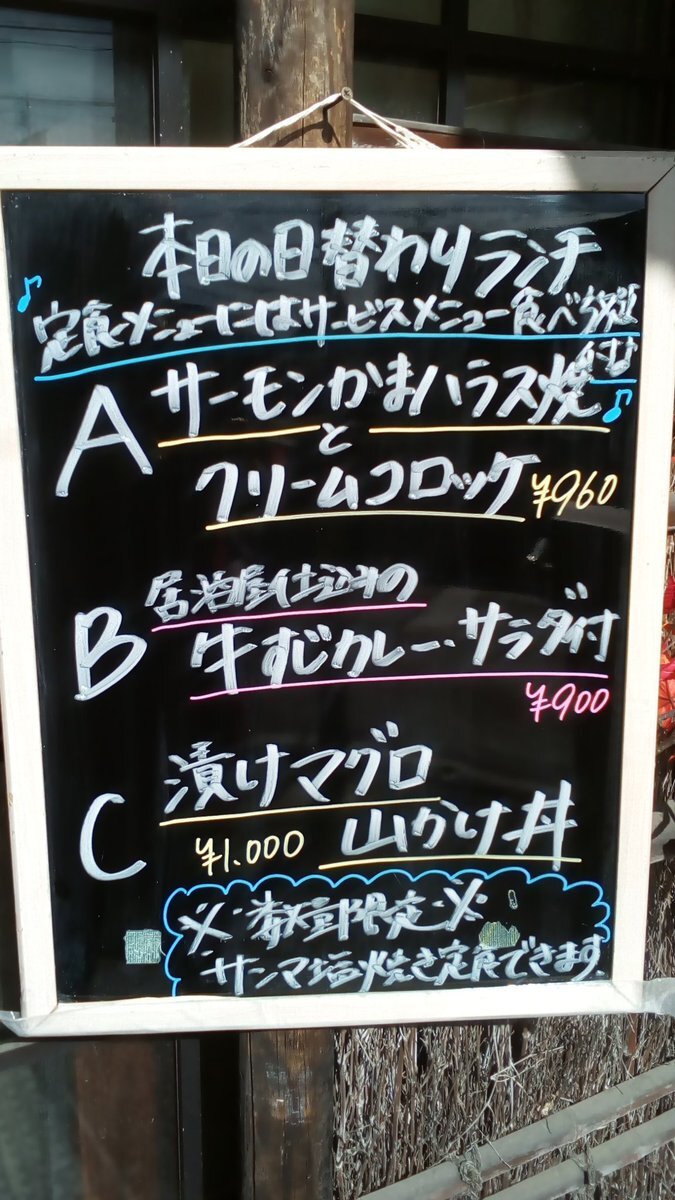 本日の日替わりランチ
♪定食メニューにはサービスメニュー食べ
♪
A サーモンかまハラス焼
と
クリームコロッケ ¥960
B 居酒屋仕込みの
牛すじカレー・サラダ付
¥900
C 漬けマグロ
¥1.000 山かけ丼
※数量限定※
サンマ塩焼き定食できます.